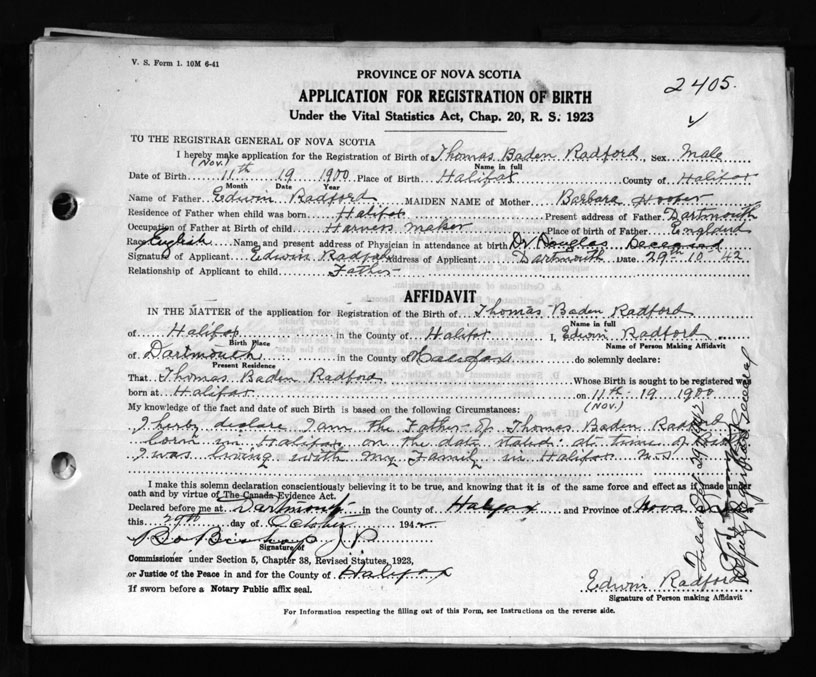 V. S. Form 1. 10M 6-41
2405.
PROVINCE OF NOVA SCOTIA
APPLICATION FOR REGISTRATION OF BIRTH
Under the Vital Statistics Act, Chap. 20, R. S. 1923
TO THE REGISTRAR GENERAL OF NOVA SCOTIA
I hereby make application for the Registration of Birth of a Thomas Baden Radford Sex Male
(Nov.) Name in full
Date of Birth 11th 19 1900 Place of Birth Halifax County of Halifax
Month Date Year
Name of Father Edwin Radford MAIDEN NAME of Mother Barbara Hooper
Residence of Father when child was born Halifax Present address of Father Dartmouth
Occupation of Father at Birth of child Harness maker Place of birth of Father England
Race English Name and present address of Physician in attendance at birth Dr Douglas Deceased
Signature of Applicant Edwin Radford Address of Applicant Dartmouth Date 29th 10 42
Relationship of Applicant to child Father
AFFIDAVIT
IN THE MATTER of the application for Registration of the Birth of Thomas Baden Radford
Name in full
of Halifax in the County of Halifax I, Edwin Radford
Birth Place Name of Person Making Affidavit
of Dartmouth in the County of Halifax do solemnly declare:
Present Residence
That Thomas Baden Radford Whose Birth is sought to be registered was
born at Halifax on 11th 19 1900
(Nov.)
My knowledge of the fact and date of such Birth is based on the following Circumstances:
I herby declare I am the Father of Thomas Baden Radford
born in Halifax on the date stated at time of
I was living with my Family in Halifax N.S.
I make this solemn declaration conscientiously believing it to be true, and knowing that it is of the same force and effect as if made under
oath and by virtue of The Canada Evidence Act.
Declared before me at Dartmouth in the County of Halifax and Province of Nova Scotia
this 29th day of October 1942
J P
Signature of
Commissioner under Section 5, Chapter 38, Revised Statutes, 1923,
or Justice of the Peace in and for the County of Halifax
If sworn before a Notary Public affix seal.
Edwin Radford
Signature of Person making Affidavit
For Information respecting the filling out of this Form, see Instructions on the reverse side.
Filed Oct 29 1942
Deputy Registrar General